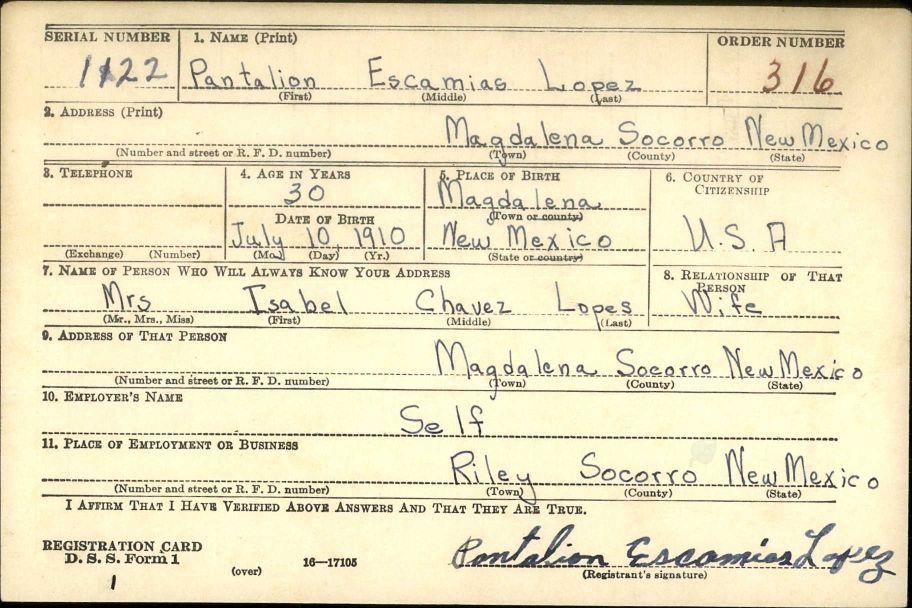 SERIAL NUMBER 1. NAME (Print) ORDER NUMBER
1122 Pantalion Escamias Lopez 316
(First) (Middle) (Last)
2. ADDRESS (Print)
Magdalena Socorro New Mexico
(Number and street or R. F. D. number) (Town) (County) (State)
3. TELEPHONE 4. AGE IN YEARS 5. PLACE OF BIRTH 6. COUNTRY OF CITIZENSHIP
30 Magdalena
(Town or county)
DATE OF BIRTH
July 10, 1910 New Mexico U.S.A
(Exchange) (Number) (Mo.) (Day) (Yr.) (State or country)
7. NAME OF PERSON WHO WILL ALWAYS KNOW YOUR ADDRESS 8. RELATIONSHIP OF THAT PERSON
Mrs Isabel Chavez Lopes Wife
(Mr., Mrs., Miss) (First) (Middle) (Last)
9. ADDRESS OF THAT PERSON
Magdalena Socorro New Mexico
(Number and street or R. F. D. number) (Town) (County) (State)
10. EMPLOYER'S NAME
Self
11. PLACE OF EMPLOYMENT OR BUSINESS
Riley Socorro New Mexico
(Number and street or R. F. D. number) (Town) (County) (State)
I AFFIRM THAT I HAVE VERIFIED ABOVE ANSWERS AND THAT THEY ARE TRUE.
REGISTRATION CARD
D. S. S. Form 1 (over) 16—17105 Pontalion Escamias Lopez
1 (Registrant's signature)